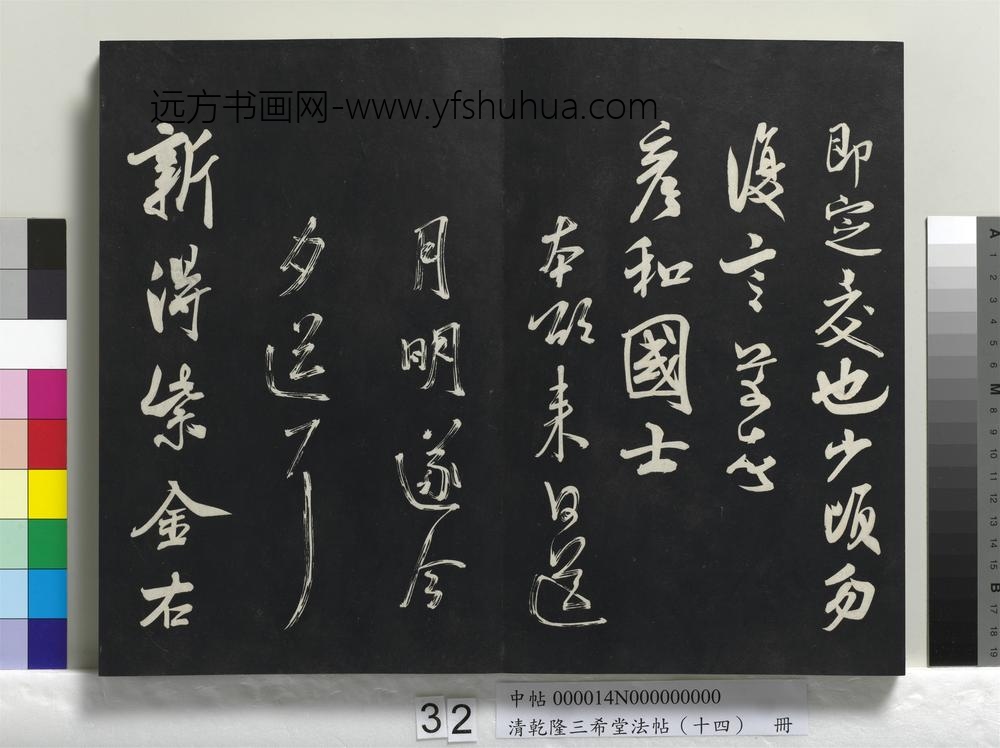 远方书画网-www.yfshuhua.com
即定交也少頃勿
復言芾
彦和國士
本欲来日送
月明遂今
夕送了
新得紫金右
32
中帖 000014N000000000
清乾隆三希堂法帖（十四） 冊
A
1
2
3
4
5
6
M
8
9
10
11
12
13
14
15
B
17
18
19